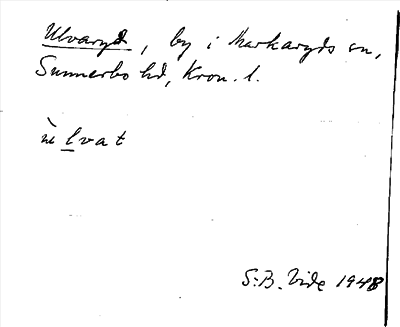 Ulvaryd, by i Markaryds sn,
Sunnerbo hd, Kron. l.
ùlvat
S.B. Vide 1948